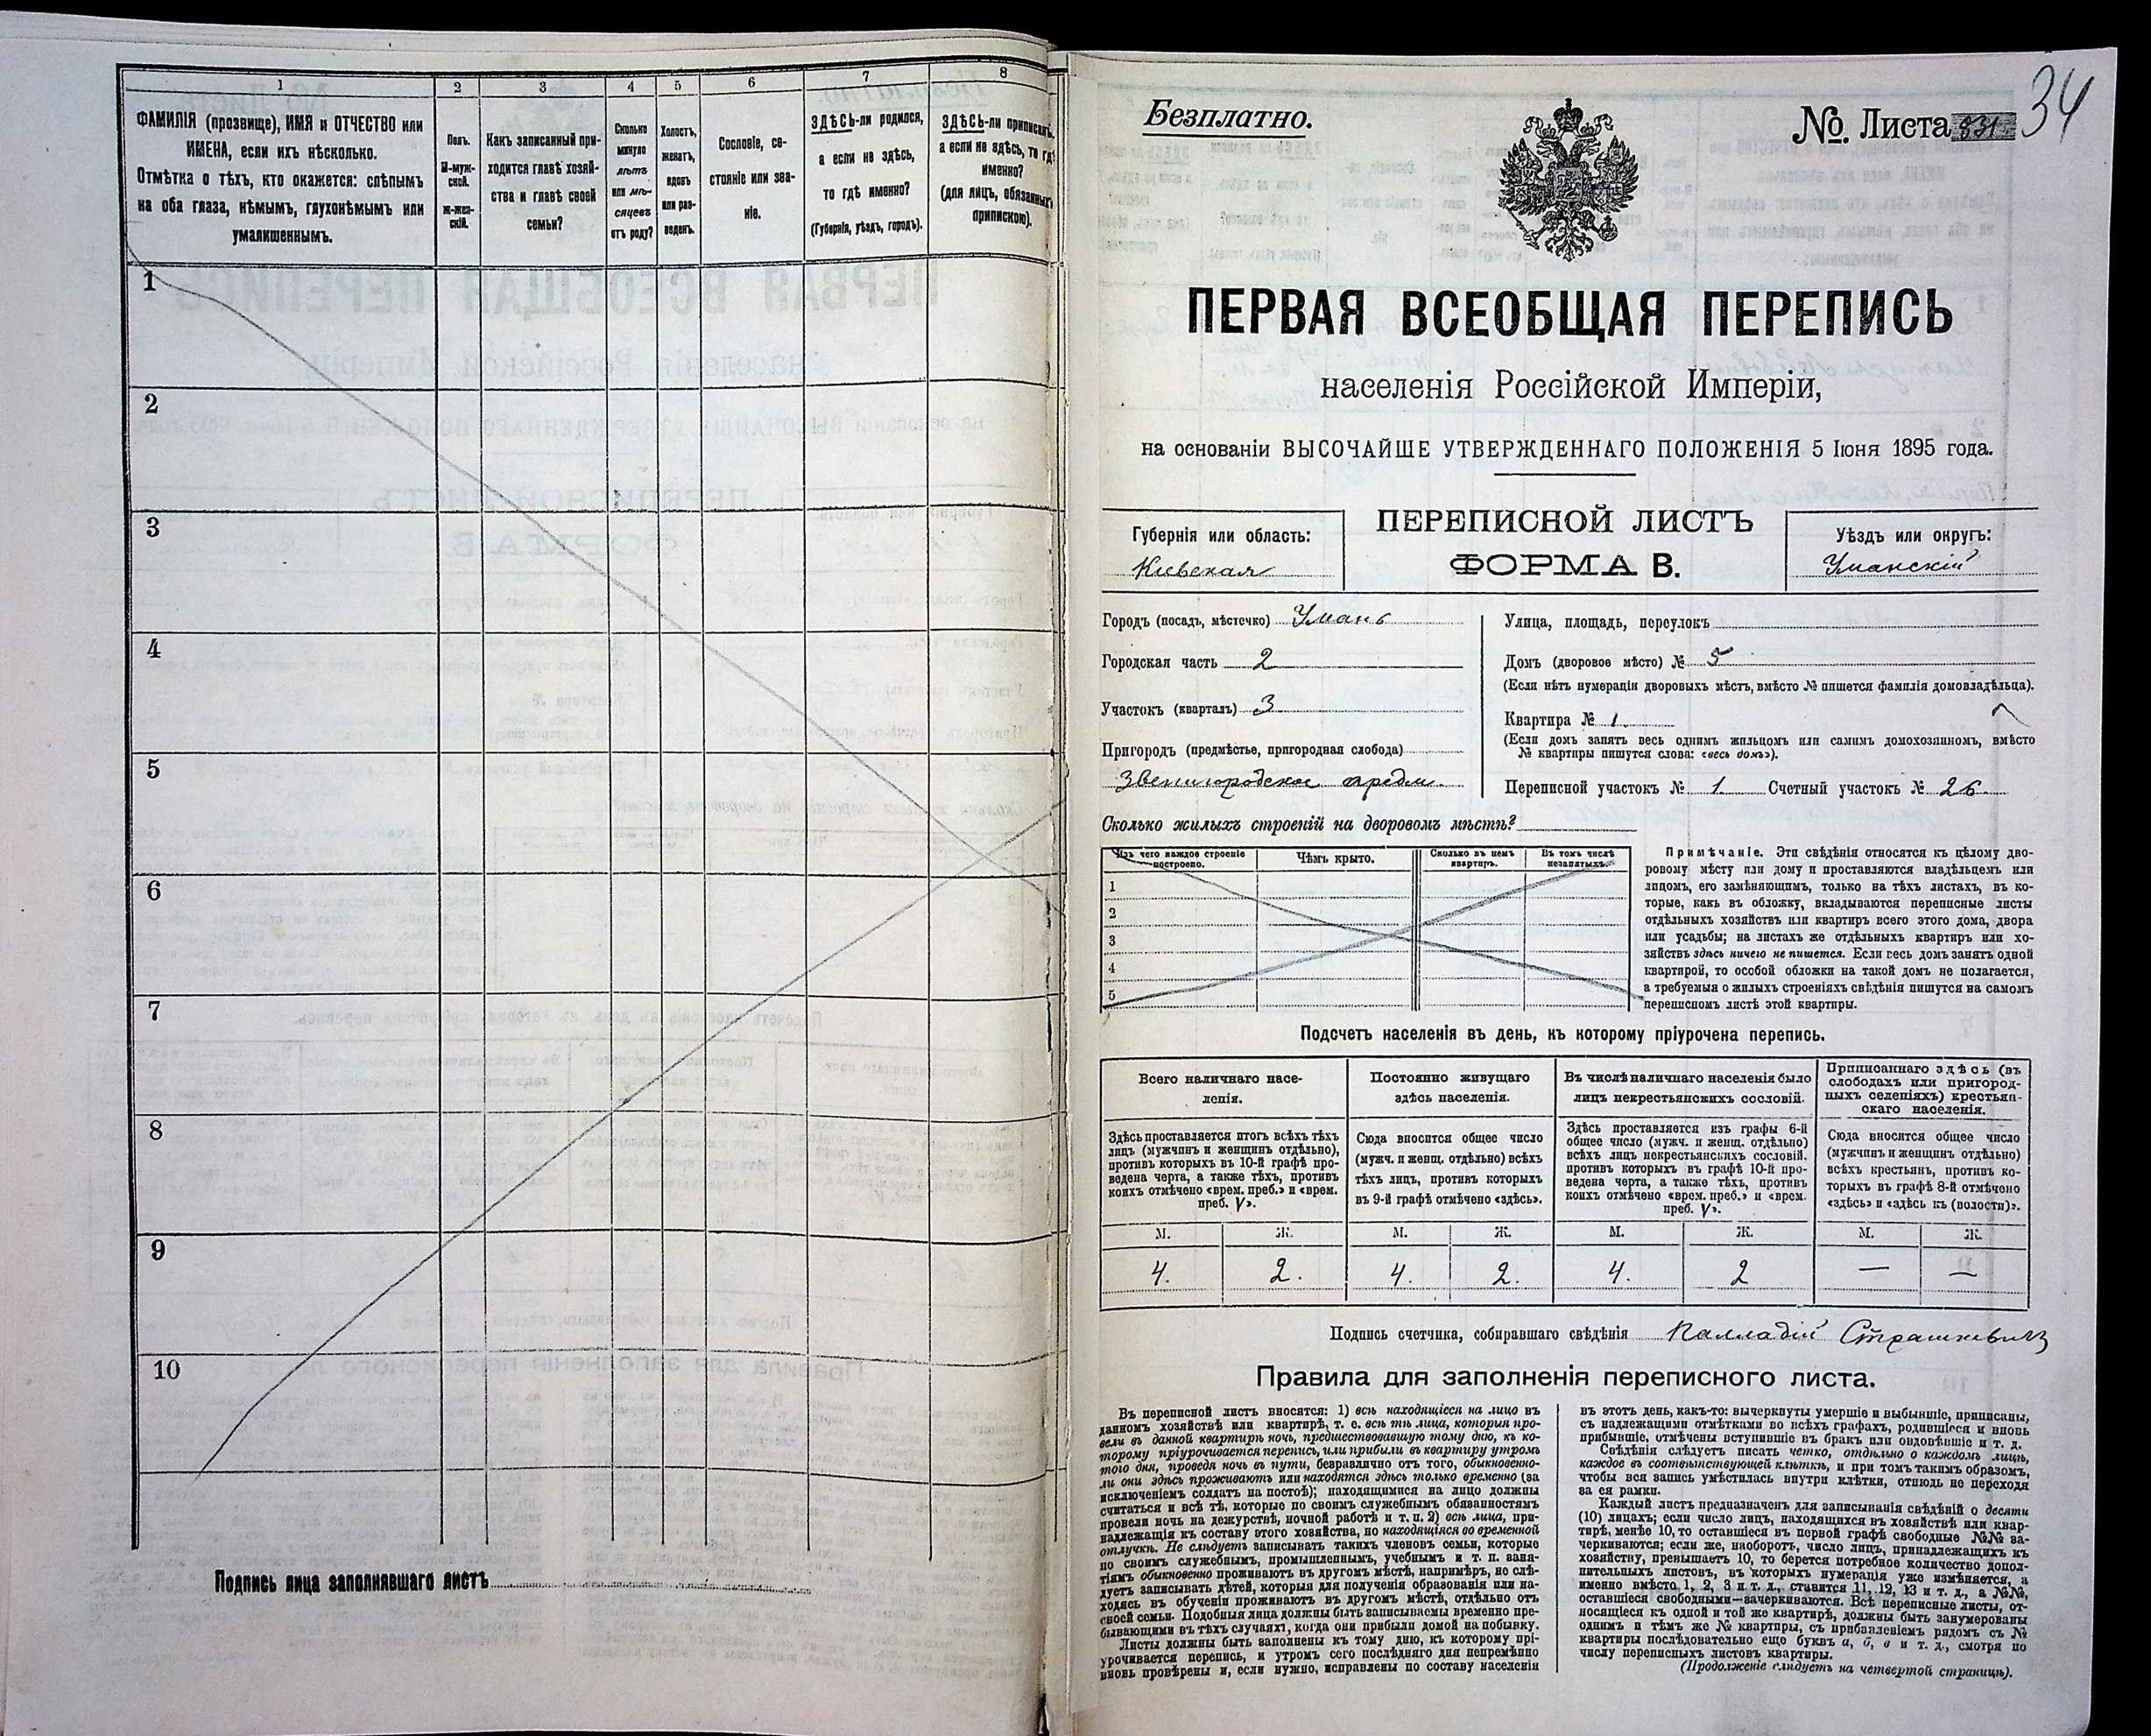 1
2
3
4
5
6
7
8
ФАМИЛІЯ (прозвище), ИМЯ и ОТЧЕСТВО или
ИМЕНА, если ихъ нѣсколько.
Отмѣтка о тѣхъ, кто окажется: слѣпымъ
на оба глаза, нѣмымъ, глухонѣмымъ или
умалишеннымъ.
Полъ.
М-муж-
ской.
Ж-жен-
скій.
Какъ записанный при-
ходится главѣ хозяй-
ства и главѣ своей
семьи?
Сколько
минуло
лѣтъ
или мѣ-
сяцевъ
отъ роду?
Холостъ,
женатъ,
вдовъ
или раз-
веденъ.
Сословіе, со-
стояніе или зва-
ніе.
ЗДѢСЬ-ли родился,
а если не здѣсь,
то гдѣ именно?
(Губернія, уѣздъ, городъ).
ЗДѢСЬ-ли приписанъ,
а если не здѣсь, то гдѣ
именно?
(для лицъ, обязанныхъ
припискою).
1
2
3
4
5
6
7
8
9
10
Подпись лица заполнявшаго листъ
Безплатно.
№ Листа 831 34
ПЕРВАЯ ВСЕОБЩАЯ ПЕРЕПИСЬ
населенія Россійской Имперіи,
на основаніи ВЫСОЧАЙШЕ УТВЕРЖДЕННАГО ПОЛОЖЕНІЯ 5 Іюня 1895 года.
ПЕРЕПИСНОЙ ЛИСТЪ
ФОРМА В.
Губернія или область:
Кіевская
Уѣздъ или округъ:
Уманскій
Городъ (посадъ, мѣстечко) Умань
Городская часть 2
Участокъ (кварталъ) 3
Пригородъ (предмѣстье, пригородная слобода)
Звенигородское предм.
Улица, площадь, переулокъ
Домъ (дворовое мѣсто) № 5
(Если нѣтъ нумераціи дворовыхъ мѣстъ, вмѣсто № пишется фамилія домовладѣльца).
Квартира № 1
(Если домъ занятъ весь однимъ жильцомъ или самимъ домохозяиномъ, вмѣсто
№ квартиры пишутся слова: «весь домъ»).
Переписной участокъ № 1 Счетный участокъ № 26
Сколько жилыхъ строеній на дворовомъ мѣстѣ?
Изъ чего каждое строеніе
построено.
Чѣмъ крыто.
Сколько въ немъ
квартиръ.
Въ томъ числѣ
незанятыхъ.
1
2
3
4
5
Примѣчаніе. Эти свѣдѣнія относятся къ цѣлому дво-
ровому мѣсту или дому и проставляются владѣльцемъ или
лицомъ, его замѣняющимъ, только на тѣхъ листахъ, въ ко-
торые, какъ въ обложку, вкладываются переписные листы
отдѣльныхъ хозяйствъ или квартиръ всего этого дома, двора
или усадьбы; на листахъ же отдѣльныхъ квартиръ или хо-
зяйствъ здѣсь ничего не пишется. Если весь домъ занятъ одной
квартирой, то особой обложки на такой домъ не полагается,
а требуемыя о жилыхъ строеніяхъ свѣдѣнія пишутся на самомъ
переписномъ листѣ этой квартиры.
Подсчетъ населенія въ день, къ которому пріурочена перепись.
Всего наличнаго насе-
ленія.
Постоянно живущаго
здѣсь населенія.
Въ числѣ наличнаго населенія было
лицъ некрестьянскихъ сословій.
Приписаннаго здѣсь (въ
слободахъ или пригород-
ныхъ селеніяхъ) крестьян-
скаго населенія.
Здѣсь проставляется итогъ всѣхъ тѣхъ
лицъ (мужчинъ и женщинъ отдѣльно),
противъ которыхъ въ 10-й графѣ про-
ведена черта, а также тѣхъ, противъ
коихъ отмѣчено «врем. преб.» и «врем.
преб. V».
Сюда вносится общее число
(мужч. и женщ. отдѣльно) всѣхъ
тѣхъ лицъ, противъ которыхъ
въ 9-й графѣ отмѣчено «здѣсь».
Здѣсь проставляется изъ графы 6-й
общее число (мужч. и женщ. отдѣльно)
всѣхъ лицъ некрестьянскихъ сословій,
противъ которыхъ въ графѣ 10-й про-
ведена черта, а также тѣхъ, противъ
коихъ отмѣчено «врем. преб.» и «врем.
преб. V».
Сюда вносится общее число
(мужчинъ и женщинъ отдѣльно)
всѣхъ крестьянъ, противъ ко-
торыхъ въ графѣ 8-й отмѣчено
«здѣсь» и «здѣсь къ (волости)».
М. Ж. М. Ж. М. Ж. М. Ж.
4. 2. 4. 2. 4. 2 — —
Подпись счетчика, собиравшаго свѣдѣнія Палладій Страшкевичъ
Правила для заполненія переписного листа.
Въ переписной листъ вносятся: 1) всѣ находящіеся на лицо въ
данномъ хозяйствѣ или квартирѣ, т. е. всѣ тѣ лица, которыя про-
вели въ данной квартирѣ ночь, предшествовавшую тому дню, къ ко-
торому пріурочивается перепись, или прибыли въ квартиру утромъ
того дня, проведя ночь въ пути, безразлично отъ того, обыкновенно-
ли они здѣсь проживаютъ или находятся здѣсь только временно (за
исключеніемъ солдатъ на постоѣ); находящимися на лицо должны
считаться и всѣ тѣ, которые по своимъ служебнымъ обязанностямъ
провели ночь на дежурствѣ, ночной работѣ и т. п. 2) всѣ лица, при-
надлежащія къ составу этого хозяйства, но находящіяся во временной
отлучкѣ. Не слѣдуетъ записывать такихъ членовъ семьи, которые
по своимъ служебнымъ, промышленнымъ, учебнымъ и т. п. заня-
тіямъ обыкновенно проживаютъ въ другомъ мѣстѣ, напримѣръ, не слѣ-
дуетъ записывать дѣтей, которыя для полученія образованія или на-
ходясь въ обученіи проживаютъ въ другомъ мѣстѣ, отдѣльно отъ
своей семьи. Подобныя лица должны быть записываемы временно пре-
бывающими въ тѣхъ случаяхъ, когда они прибыли домой на побывку.
Листы должны быть заполнены къ тому дню, къ которому прі-
урочивается перепись, и утромъ сего послѣдняго дня непремѣнно
вновь провѣрены и, если нужно, исправлены по составу населенія
въ этотъ день, какъ-то: вычеркнуты умершіе и выбывшіе, приписаны,
съ надлежащими отмѣтками во всѣхъ графахъ, родившіеся и вновь
прибывшіе, отмѣчены вступившіе въ бракъ или овдовѣвшіе и т. д.
Свѣдѣнія слѣдуетъ писать четко, отдѣльно о каждомъ лицѣ,
каждое въ соотвѣтствующей клѣткѣ, и при томъ такимъ образомъ,
чтобы вся запись умѣстилась внутри клѣтки, отнюдь не переходя
за ея рамки.
Каждый листъ предназначенъ для записыванія свѣдѣній о десяти
(10) лицахъ; если число лицъ, находящихся въ хозяйствѣ или квар-
тирѣ, менѣе 10, то оставшіеся въ первой графѣ свободные №№ за-
черкиваются; если же, наоборотъ, число лицъ, принадлежащихъ къ
хозяйству, превышаетъ 10, то берется потребное количество допол-
нительныхъ листовъ, въ которыхъ нумерація уже измѣняется, а
именно вмѣсто 1, 2, 3 и т. д., ставится 11, 12, 13 и т. д., а №№,
оставшіеся свободными—зачеркиваются. Всѣ переписные листы, от-
носящіеся къ одной и той же квартирѣ, должны быть занумерованы
однимъ и тѣмъ же № квартиры, съ прибавленіемъ рядомъ съ №
квартиры послѣдовательно еще буквъ а, б, в и т. д., смотря по
числу переписныхъ листовъ квартиры.
(Продолженіе слѣдуетъ на четвертой страницѣ).